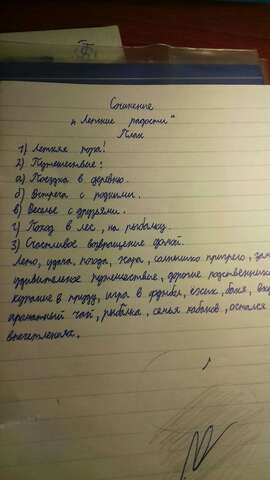 Сочинение
„Летние радости"
План
1) Летняя пора!
2) Путешествие:
а) Поездка в деревню.
б) Встреча с родными.
в) Веселье с друзьями.
г) Поход в лес, на рыбалку.
3) Счастливое возвращение домой.
Лето, удача, погода, жара, солнышко пригрело,
удивительное путешествие, дорогие родственники
купание в пруду, игра в футбол, ёжик, баня,
ароматный чай, рыбалка, семья кабанов, остался
впечатления.